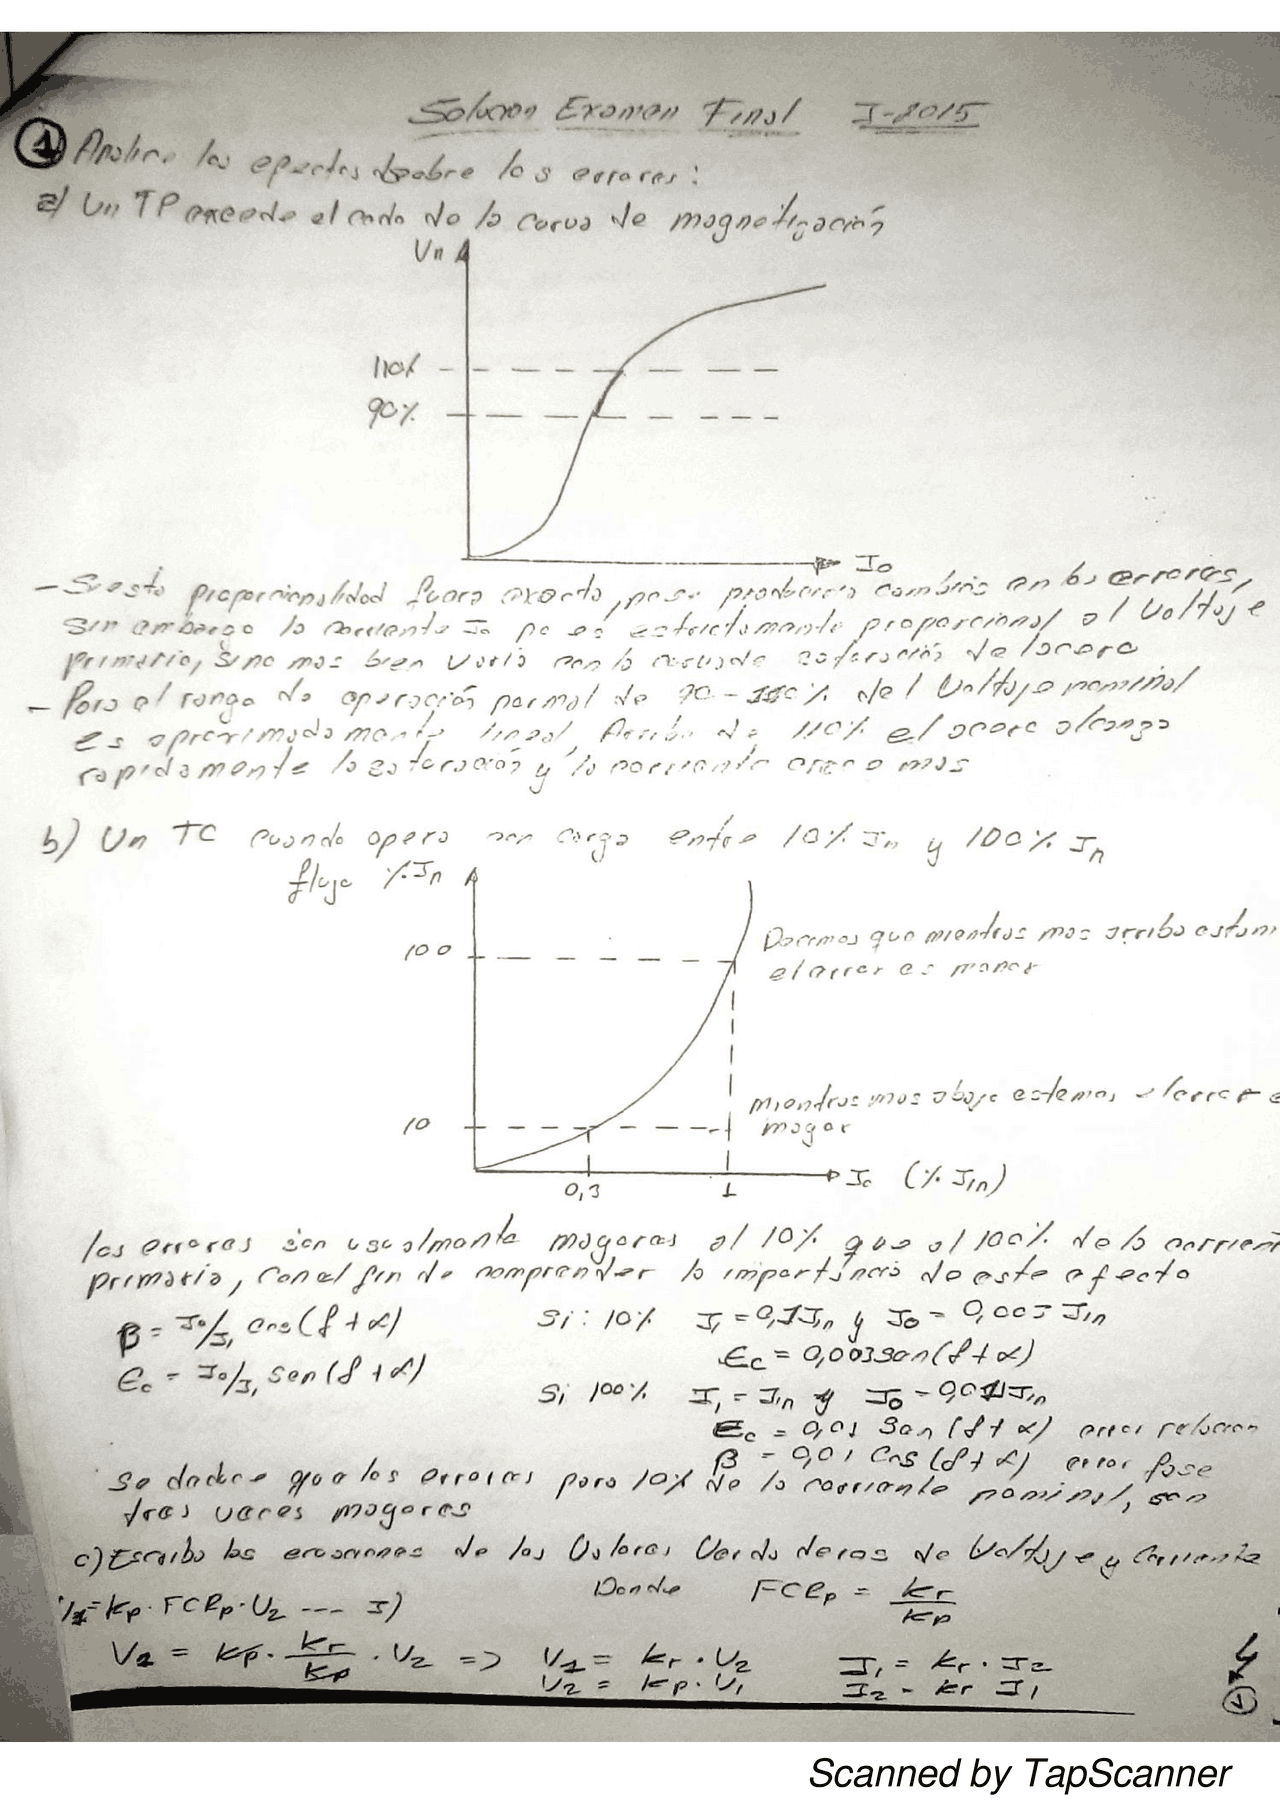 Solucion Examen Final I-2015
① Analice los efectos sobre los errores:
a) Un TP excede el codo de la curva de magnetización
Vn
110%
90%
Io
- Si esta proporcionalidad fuera exacta, no se produciria cambios en los errores,
sin embargo la corriente Io no es estrictamente proporcional al Voltaje
primario, sino mas bien varia con la curva de saturación de
- Para el rango de operación normal de 90-110% del Voltaje nominal
es aproximadamente lineal, Arriba de 110% el alcanza
rapidamente la saturación y la corriente crece mas
b) Un TC cuando opera con carga entre 10% In y 100% In
flujo %In
100
Decimos que mientras mas arriba
el error es menor
mientras mas abajo estemos el error
10
mayor
Io (% I1n)
0,3 1
los errores son usualmente mayores al 10% que al 100% de la
primaria, con el fin de comprender la importancia de este efecto
β = Io/I1 cos(δ+α) Si: 10% I1 = 0,1I1n y Io = 0,003 I1n
Ec = 0,003sen(δ+α)
Ec = Io/I1 sen(δ+α)
Si 100% I1 = I1n y Io = 0,01I1n
Ec = 0,01 Sen(δ+α) error relacion
β = 0,01 Cos(δ+α) error fase
se deduce que los errores para 10% de la corriente nominal, son
tres veces mayores
c) Escriba las ecuaciones de los Valores Verdaderos de Voltaje y Corriente
V1=Kp.FCRp.U2 --- I) Donde FCRp = kr/Kp
V1 = Kp. kr/Kp . V2 => V1 = kr . V2 I1 = kr . I2
V2 = kp . V1 I2 = kr I1
Scanned by TapScanner